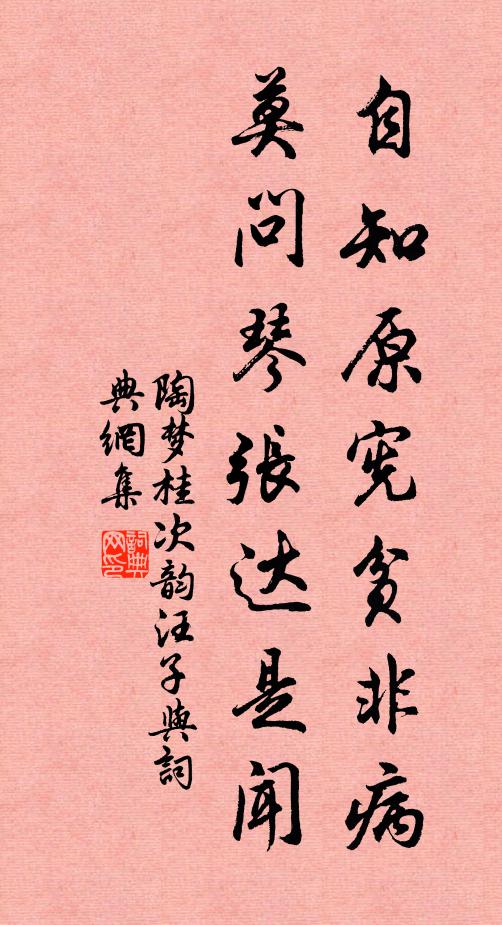 自知原宪贫非病
莫问琴張达是闻
陶梦桂次韵汪子與詞
典網集
詞典
网印